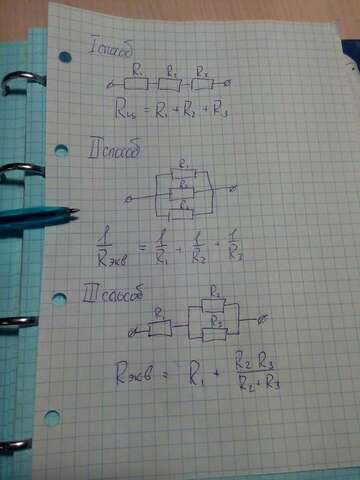 I способ
R₁ R₂ R₃
Rц = R₁ + R₂ + R₃
II способ
R₁
R₂
R₃
1/Rэкв = 1/R₁ + 1/R₂ + 1/R₃
III способ
R₂
R₁
R₃
Rэкв = R₁ + R₂ R₃/R₂+R₃